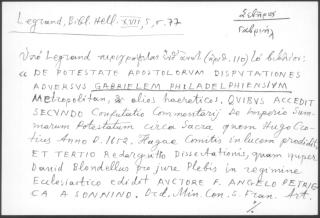 Legrand, Bibl. Hell. XVII, 5, σ. 77
Σεβῆρος
Γαβριὴλ
Ὑπὸ Legrand περιγράφεται ὑπ' ἀριθ. (ἀριθ. 110) τὸ βιβλίον:
"DE POTESTATE APOSTOLORUM DISPUTATIONES
ADVERSUS GABRIELEM PHILADELPHIENSIUM
Metropolitan, & alios haereticos. QUIBUS ACCEDIT
SECUNDO Confutatio Commentarij De Imperio Sum-
marum Potestatum circa Sacra quem Hugo Gro-
tius Anno D. 1652. Hagae Comitis in lucem prodidit.
ET TERTIO Redargutio Dissertationis, quam nuper
David Blondellus pro jure Plebis in regimine
Ecclesiastico edidit AUCTORE F. ANGELO PETRIC-
CA A SONNINO. Ord. Min. Con. S. Fran. Art.